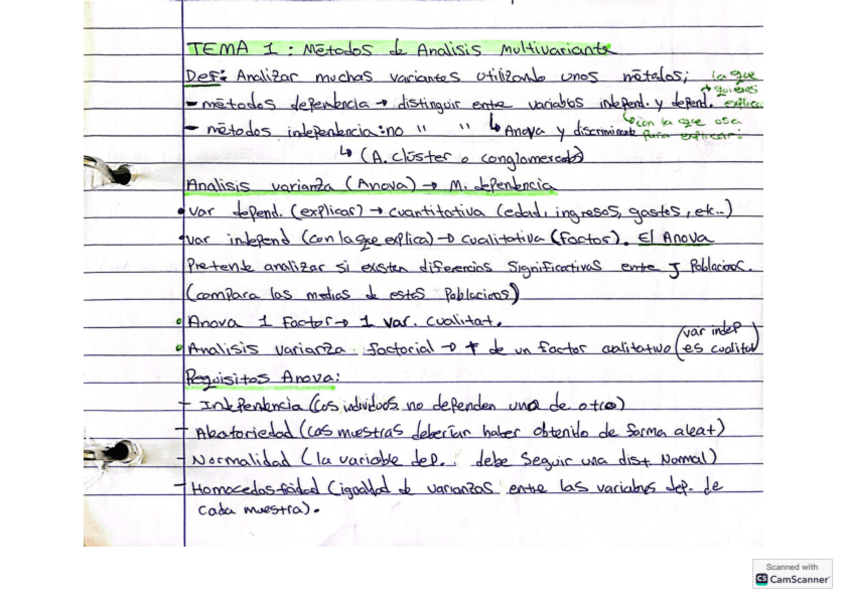 TEMA 1: Métodos de Analisis Multivariante
Def: Analizar muchas variantes utilizando unos métodos; la que
quieres
- métodos dependencia → distinguir entre variables independ. y depend. explicar
con la que
- métodos independencia: no " " ↳ Anova y discriminante para explicar.
↳ (A. clúster o conglomerados)
Analisis varianza (Anova) → M. dependencia
• var depend. (explicar) → cuantitativa (edad, ingresos, gastos, etc..)
• var independ (con la que explica) → cualitativa (factor). El Anova
Pretende analizar si existen diferencias significativas entre J Poblacions.
(compara las medias de estas Poblaciones)
• Anova 1 Factor → 1 var. cualitat.
• Analisis varianza factorial → + de un factor cualitativo (var indep
es cualitat)
Requisitos Anova:
- Independencia (Los individuos no dependen uno de otro)
- Aleatoriedad (Las muestras deberían haber obtenido de forma aleat)
- Normalidad (la variable dep. debe seguir una dist Normal)
- Homocedasticidad (igualdad de varianzas entre las variables dep. de
cada muestra).
Scanned with
CS CamScanner